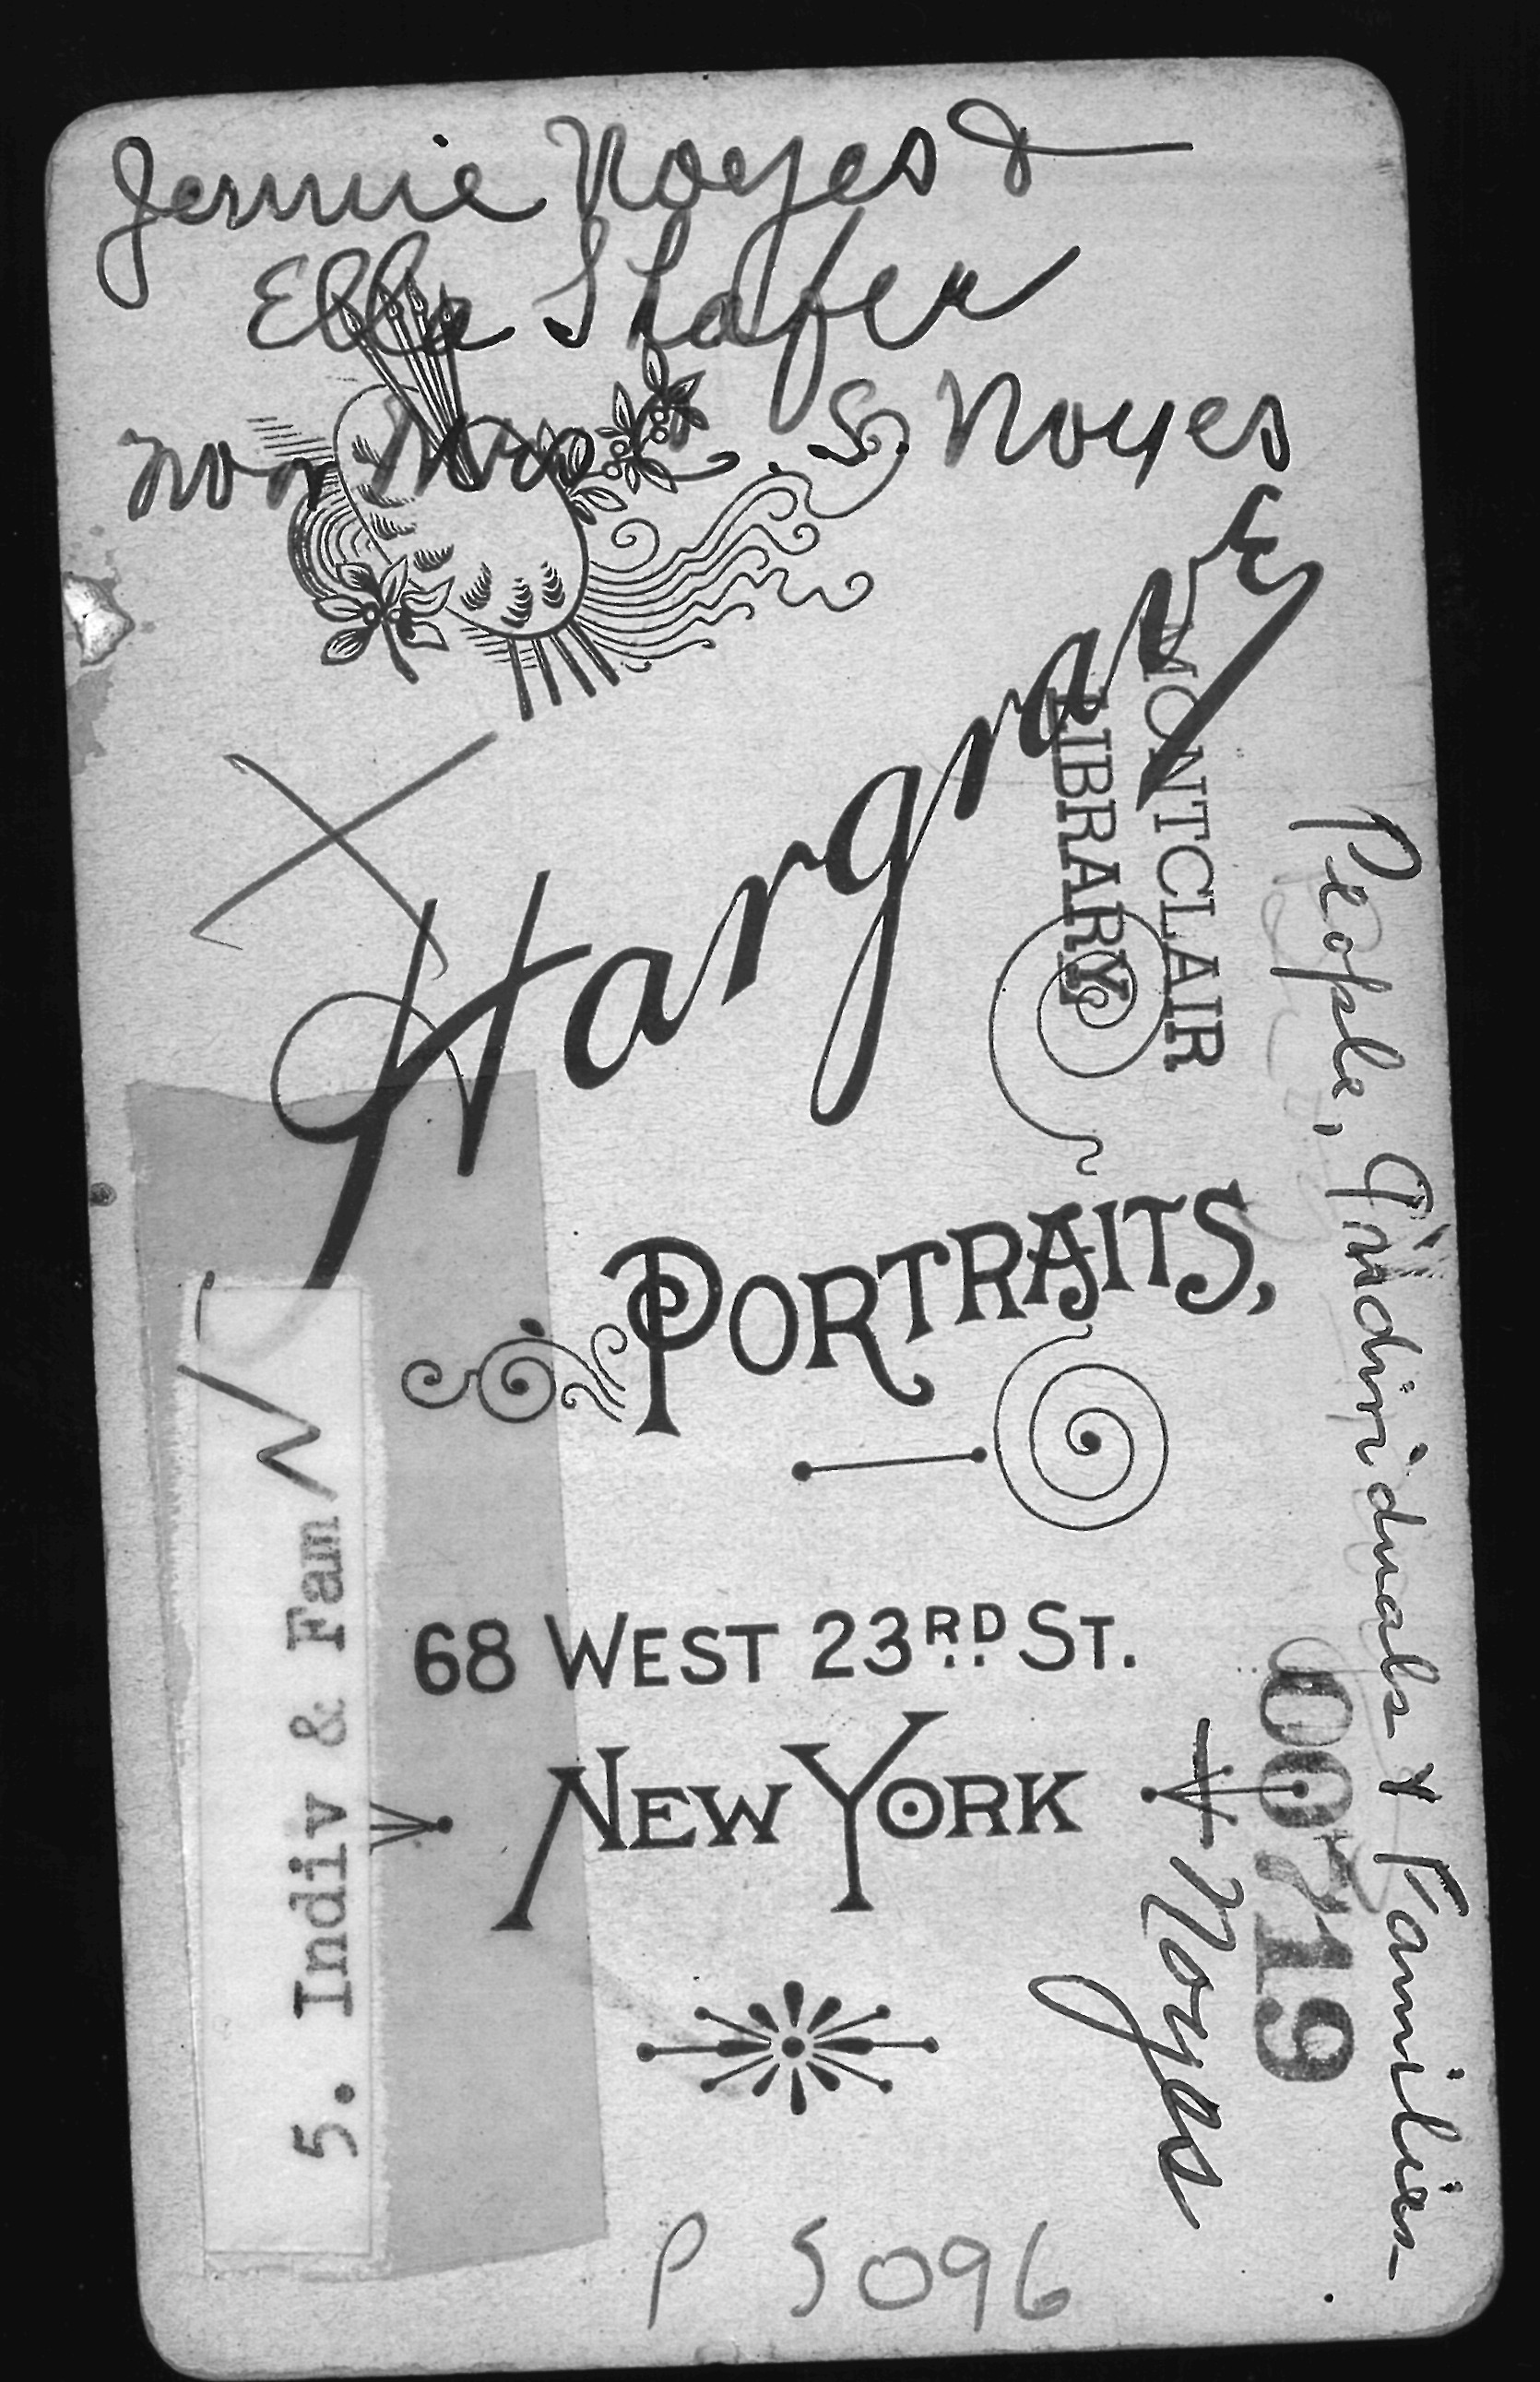 Jennie Noyes &
Ella Shafer
now Mrs. S. Noyes
Hargrave
MONTCLAIR
LIBRARY
PORTRAITS,
68 WEST 23RD ST.
NEW YORK
People, Individuals & Families-
Noyes
00719
5. Indiv & Fam
P 5096